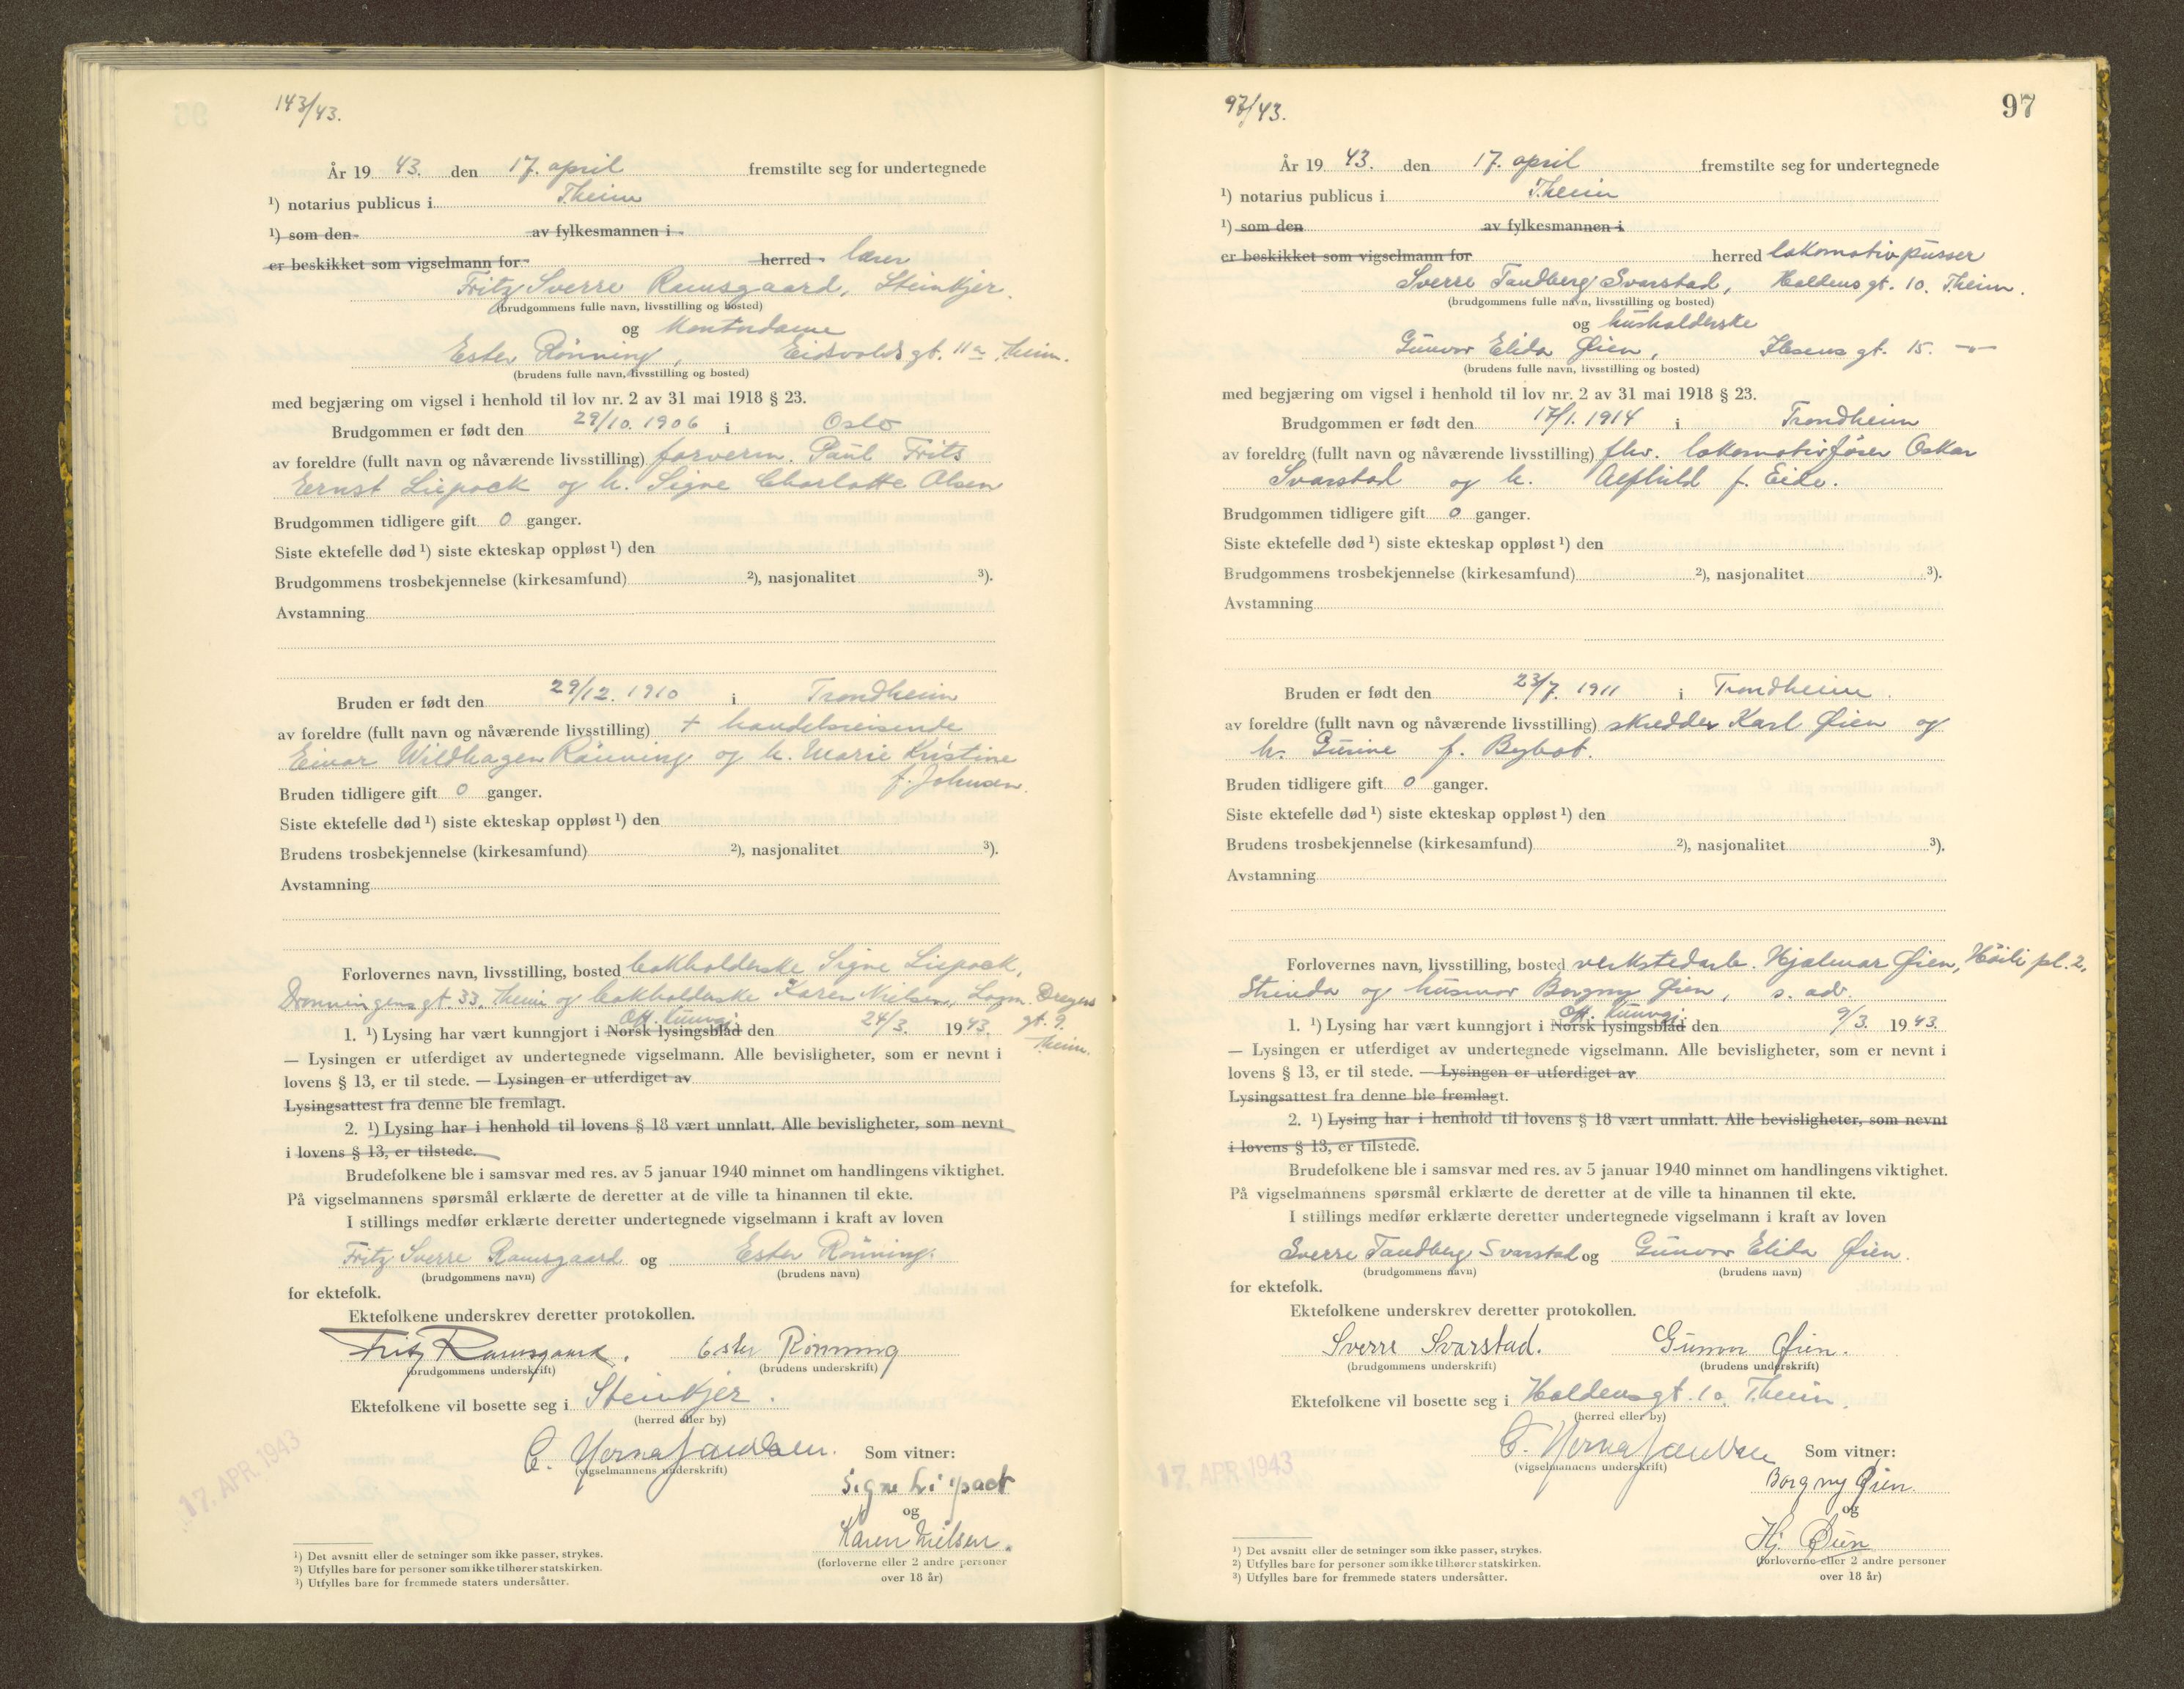 143/43.
År 19 43. den 17. april fremstilte seg for undertegnede
¹) notarius publicus i Theim
¹) som den av fylkesmannen i
er beskikket som vigselmann for herred lærer
Fritz Sverre Ramsgaard, Steinkjer.
(brudgommens fulle navn, livsstilling og bosted)
og kontordame
Ester Rönning, Eidsvolds gt. 11a, Theim.
(brudens fulle navn, livsstilling og bosted)
med begjæring om vigsel i henhold til lov nr. 2 av 31 mai 1918 § 23.
Brudgommen er født den 29/10. 1906 i Oslo
av foreldre (fullt navn og nåværende livsstilling) farverm. Paul Frits
Ernst Liepack og h. Signe Charlotte Olsen
Brudgommen tidligere gift 0 ganger.
Siste ektefelle død ¹) siste ekteskap oppløst ¹) den
Brudgommens trosbekjennelse (kirkesamfund) ²), nasjonalitet ³).
Avstamning
Bruden er født den 29/12. 1910 i Trondheim
av foreldre (fullt navn og nåværende livsstilling) + handelsreisende
Einar Wildhagen Rönning og h. Marie Kristine
f. Johnsen.
Bruden tidligere gift 0 ganger.
Siste ektefelle død ¹) siste ekteskap oppløst ¹) den
Brudens trosbekjennelse (kirkesamfund) ²), nasjonalitet ³).
Avstamning
Forlovernes navn, livsstilling, bosted bokholderske Signe Liepack,
Dronningens gt. 33, Theim og bokholderske Karen Nielsen, Lozm. Dreyers
gt. 9.
Theim.
Off. kunngj.
1. ¹) Lysing har vært kunngjort i Norsk lysingsblad den 24/3. 19 43.
— Lysingen er utferdiget av undertegnede vigselmann. Alle bevisligheter, som er nevnt i
lovens § 13, er til stede. — Lysingen er utferdiget av
Lysingsattest fra denne ble fremlagt.
2. ¹) Lysing har i henhold til lovens § 18 vært unnlatt. Alle bevisligheter, som nevnt
i lovens § 13, er tilstede.
Brudefolkene ble i samsvar med res. av 5 januar 1940 minnet om handlingens viktighet.
På vigselmannens spørsmål erklærte de deretter at de ville ta hinannen til ekte.
I stillings medfør erklærte deretter undertegnede vigselmann i kraft av loven
Fritz Sverre Ramsgaard og Ester Rönning.
(brudgommens navn) (brudens navn)
for ektefolk.
Ektefolkene underskrev deretter protokollen.
Fritz Ramsgaard. Ester Rönning
(brudgommens underskrift) (brudens underskrift)
Ektefolkene vil bosette seg i Steinkjer.
(herred eller by)
(vigselmannens underskrift)
Som vitner:
Signe Liepack
og
Karen Nielsen.
(forloverne eller 2 andre personer
over 18 år)
17. APR. 1943
¹) Det avsnitt eller de setninger som ikke passer, strykes.
²) Utfylles bare for personer som ikke tilhører statskirken.
³) Utfylles bare for fremmede staters undersåtter.
97/43.
97
År 19 43. den 17. april fremstilte seg for undertegnede
¹) notarius publicus i Theim
¹) som den av fylkesmannen i
er beskikket som vigselmann for herred lokomotivpusser
Sverre Tandberg Svarstad, Haldens gt. 10. Theim.
(brudgommens fulle navn, livsstilling og bosted)
og husholderske
Gunvor Elida Øien, Ilsens gt. 15. —"—
(brudens fulle navn, livsstilling og bosted)
med begjæring om vigsel i henhold til lov nr. 2 av 31 mai 1918 § 23.
Brudgommen er født den 17/1. 1914 i Trondheim
av foreldre (fullt navn og nåværende livsstilling) fhv. lokomotivfører Oskar
Svarstad og h. Alfhild f. Eide.
Brudgommen tidligere gift 0 ganger.
Siste ektefelle død ¹) siste ekteskap oppløst ¹) den
Brudgommens trosbekjennelse (kirkesamfund) ²), nasjonalitet ³).
Avstamning
Bruden er født den 23/7. 1911 i Trondheim.
av foreldre (fullt navn og nåværende livsstilling) skredder Karl Øien og
h. Gurine f. Bybot.
Bruden tidligere gift 0 ganger.
Siste ektefelle død ¹) siste ekteskap oppløst ¹) den
Brudens trosbekjennelse (kirkesamfund) ²), nasjonalitet ³).
Avstamning
Forlovernes navn, livsstilling, bosted verkstedarb. Hjalmar Øien, Höili pl. 2,
Strinda og husmor Borgny Øien, s. adr.
Off. kunngj.
1. ¹) Lysing har vært kunngjort i Norsk lysingsblad den 9/3. 19 43.
— Lysingen er utferdiget av undertegnede vigselmann. Alle bevisligheter, som er nevnt i
lovens § 13, er til stede. — Lysingen er utferdiget av
Lysingsattest fra denne ble fremlagt.
2. ¹) Lysing har i henhold til lovens § 18 vært unnlatt. Alle bevisligheter, som nevnt
i lovens § 13, er tilstede.
Brudefolkene ble i samsvar med res. av 5 januar 1940 minnet om handlingens viktighet.
På vigselmannens spørsmål erklærte de deretter at de ville ta hinannen til ekte.
I stillings medfør erklærte deretter undertegnede vigselmann i kraft av loven
Sverre Tandberg Svarstad og Gunvor Elida Øien.
(brudgommens navn) (brudens navn)
for ektefolk.
Ektefolkene underskrev deretter protokollen.
Sverre Svarstad. Gunvor Øien.
(brudgommens underskrift) (brudens underskrift)
Ektefolkene vil bosette seg i Haldens gt. 10. Theim.
(herred eller by)
(vigselmannens underskrift)
Som vitner:
Borgny Øien.
og
Hj. Øien
(forloverne eller 2 andre personer
over 18 år)
17. APR. 1943
¹) Det avsnitt eller de setninger som ikke passer, strykes.
²) Utfylles bare for personer som ikke tilhører statskirken.
³) Utfylles bare for fremmede staters undersåtter.